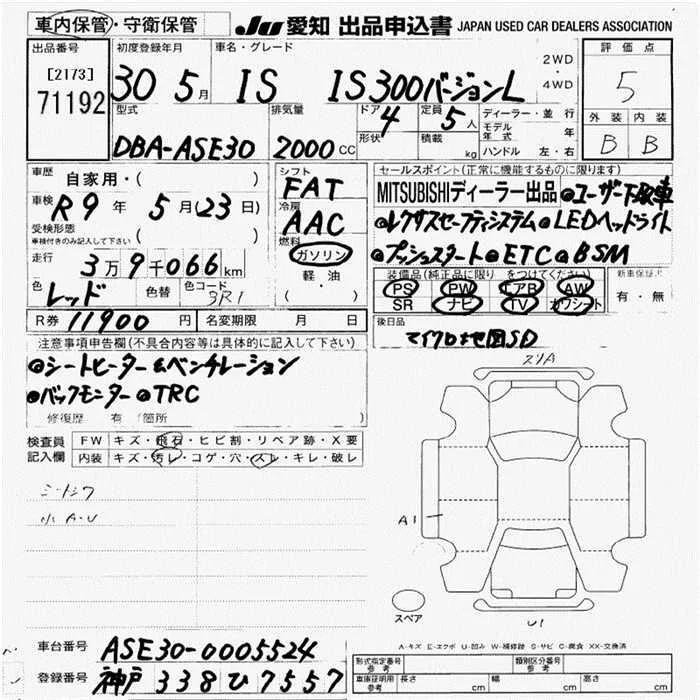 車内保管・守衛保管 JU 愛知 出品申込書 JAPAN USED CAR DEALERS ASSOCIATION
出品番号 初度登録年月 車名・グレード 評価点
[2173] 71192 30 5月 IS IS300バージョンL 2WD・4WD 5
型式 排気量 ドア 4 形状 定員 5人 積載 kg ディーラー・並行 モデル年式 年 ハンドル 左・右 外装 内装
DBA-ASE30 2000CC B B
車歴 自家用・( ) シフト FAT セールスポイント(正常に機能するものに限ります)
車検 R9年 5月(23日) 冷房 AAC MITSUBISHIディーラー出品 ●ユーザー下取車
受検形態 車検付きのみ記入して下さい ( ) 燃料 ガソリン ●レクサスセーフティシステム ●LEDヘッドライト
走行 3万9千066km 軽・油 ( ) ●プッシュスタート ●ETC ●BSM
色 レッド 色替 色コード 3R1 装備品(純正品に限り をつけてください) 新車保証
PS PW エアB AW
SR ナビ TV カワシート 有・無
R券 11900円 名変期限 月 日 後日品
マイクロ地図SD
注意事項申告欄(不具合内容等は具体的に記入して下さい)
●シートヒーター&ベンチレーション
●バックモニター ●TRC
修復歴 有(箇所 )
スリA
検査員記入欄 FW キズ・飛石・ヒビ割・リペア跡・X要
内装 キズ・汚レ・コゲ・穴・スレ・キレ・破レ
シートシワ
小A・U
A1
スペア
U1
A-キズ E-エクボ U-凹み W-補修跡 S-サビ C-腐食 XX-交換済
車台番号 ASE30-0005524 形式指定番号 参考 類別区分番号 参考
登録番号 神戸 338ひ7557 車庫証明用 参考 長さ cm 幅 cm 高さ cm